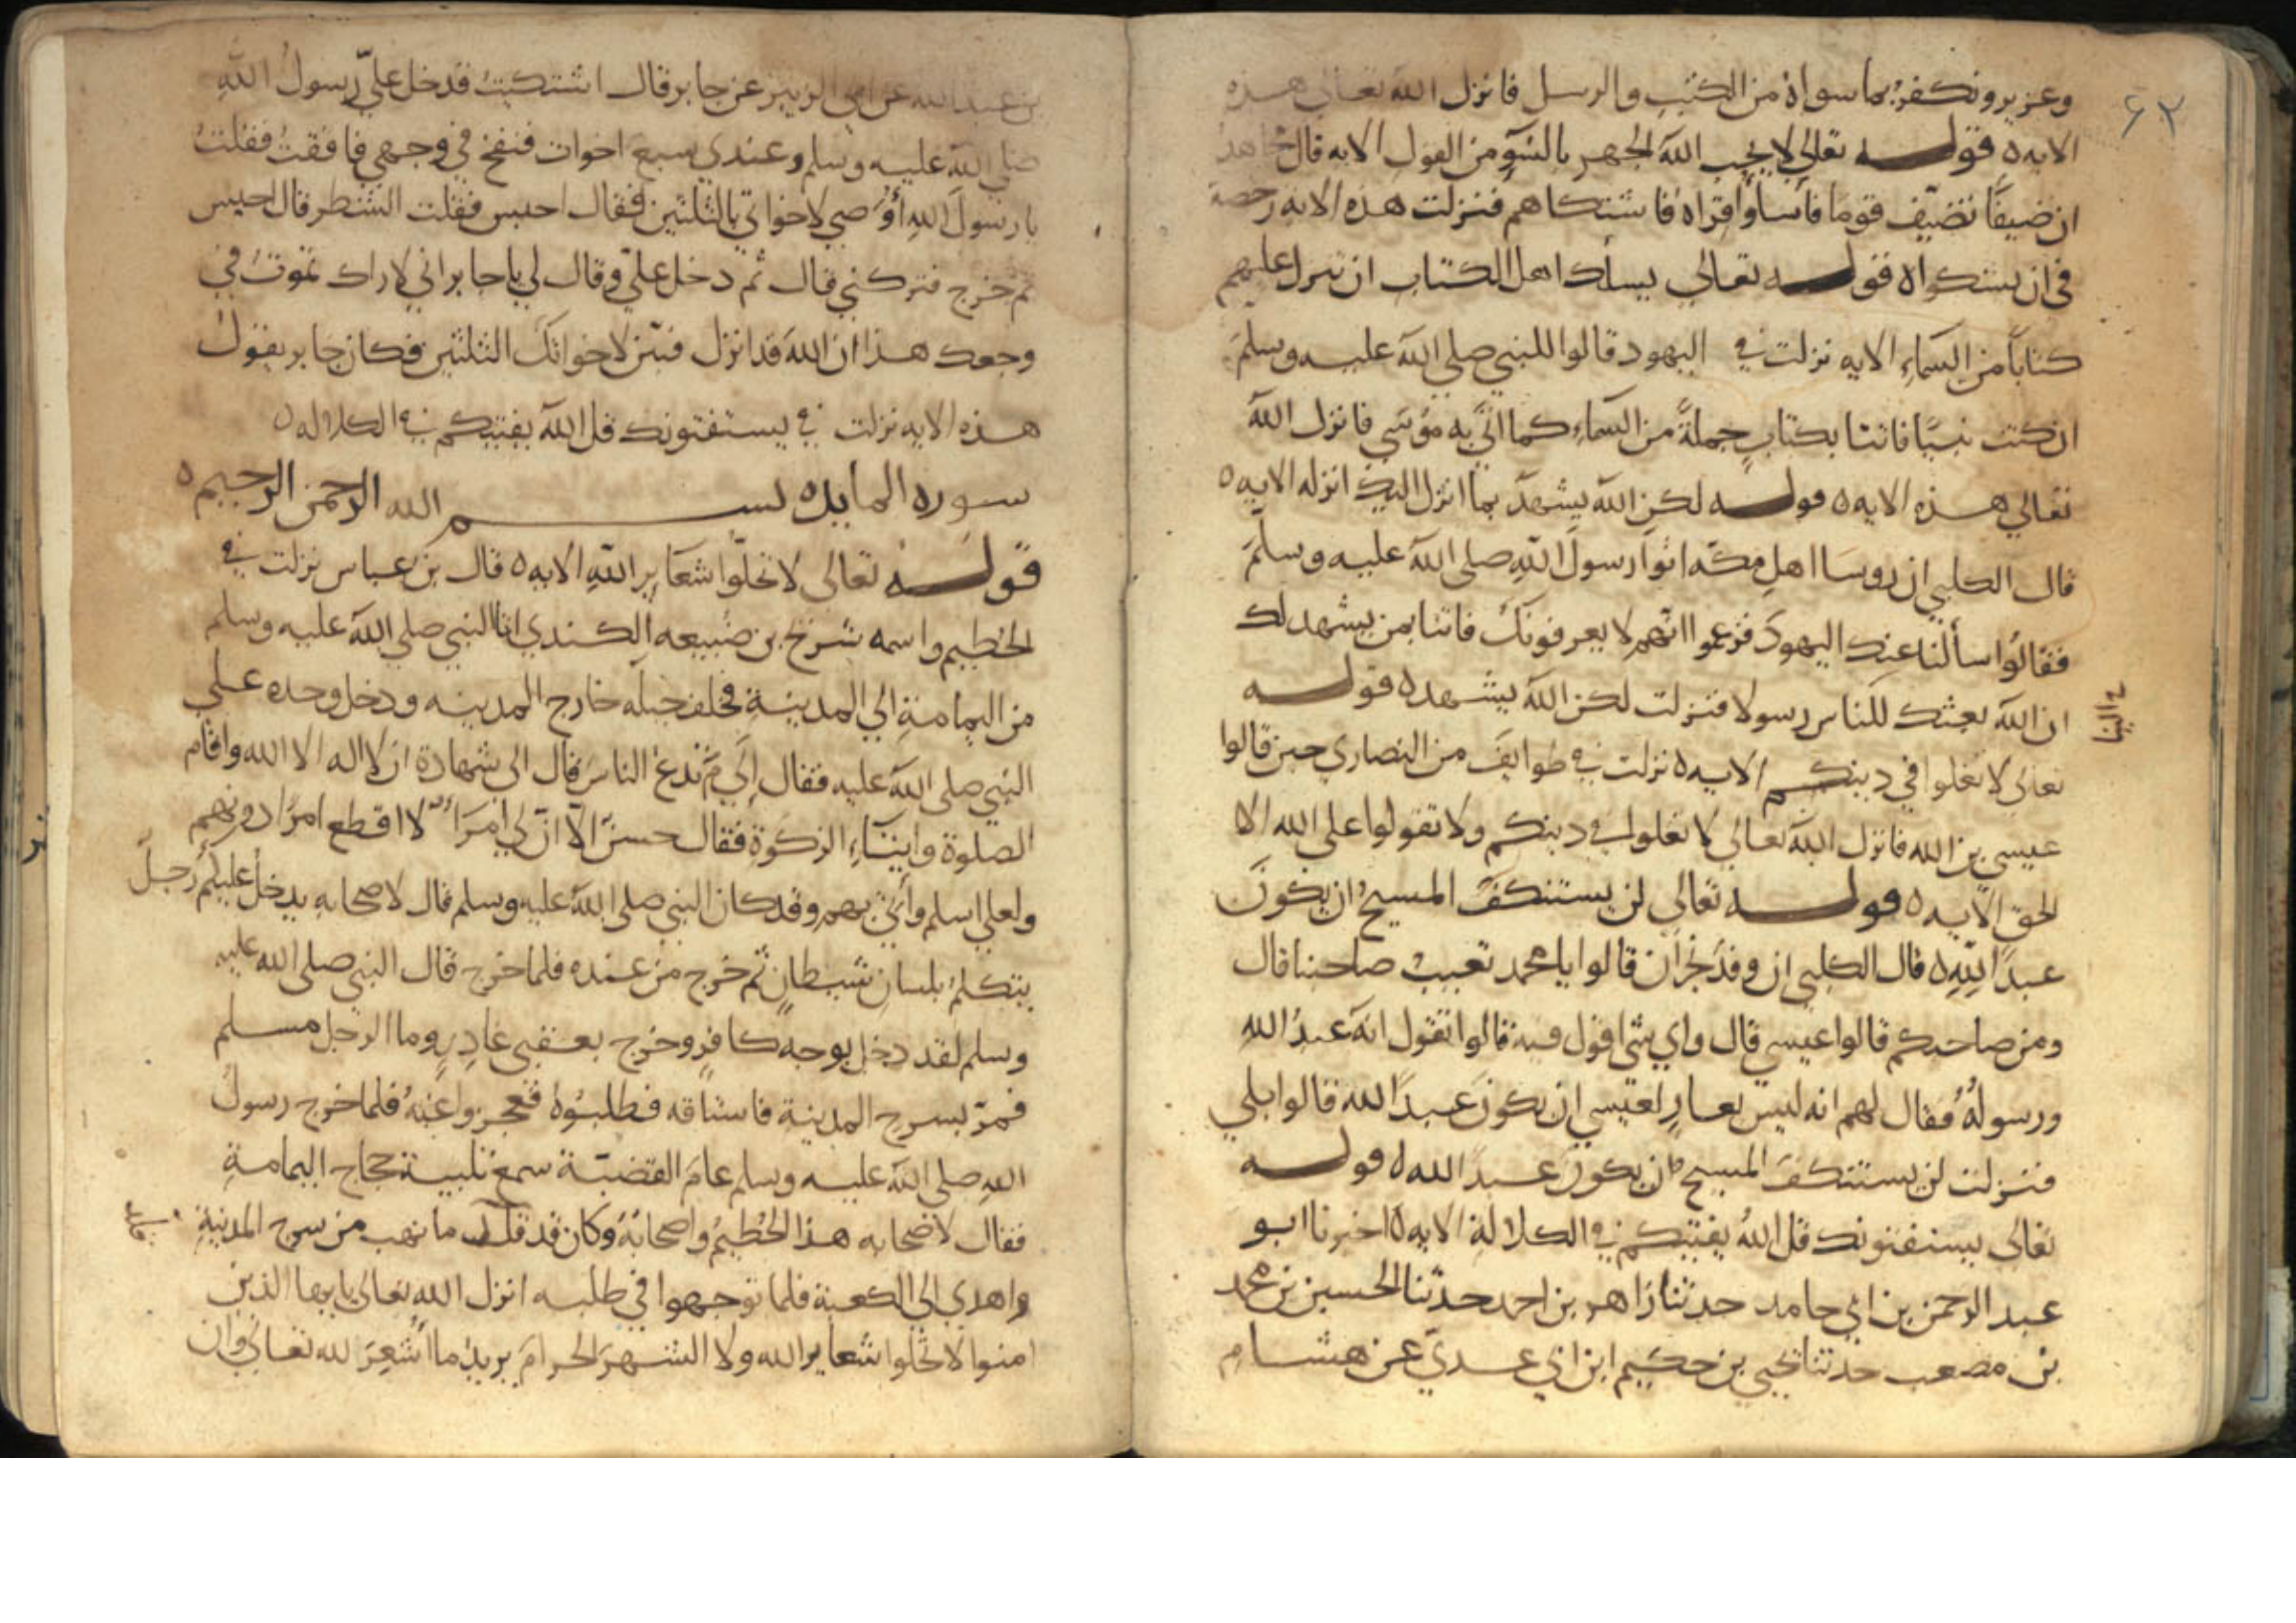 ٦٢
وعزير ونكفر بما سواه من الكتب والرسل فانزل الله تعالى هذه
الايه ه قوله تعالى لا يحب الله الجهر بالسوء من القول الايه قال مجاهد
ان ضيفًا تضيّف قوما فأساوا قراه فاشتكاهم فنزلت هذه الايه رخصة
فى ان يشكواه قوله تعالى يسألك اهل الكتاب ان تنزل عليهم
كتابًا من السماءِ الايه نزلت في اليهود قالوا للنبي صلى الله عليه وسلم
ان كنت نبيًا فاتنا بكتابٍ جملةً من السماءِ كما اتى به موسى فانزل الله
تعالى هذه الايه ه قوله لكن الله يشهد بما انزل اليك انزله الايه ه
قال الكلبي ان روسا اهل مكة اتوا رسول الله صلى الله عليه وسلم
فقالوا سألنا عنك اليهود فزعموا انهم لا يعرفونك فاتنا بمن يشهد لك
ان الله بعثك للناس رسولا فنزلت لكن الله يشهد ه قوله
تعالى لا تغلوا في دينكم الايه ه نزلت في طوايف من النصارى حين قالوا
عيسى بن الله فانزل الله تعالى لا تغلوا في دينكم ولا تقولوا على الله الا
الحق الايه ه قوله تعالى لن يستنكف المسيح ان يكون
عبدًا لله ه قال الكلبي ان وفد نجران قالوا يا محمد تعيب صاحبنا قال
ومن صاحبكم قالوا عيسى قال واي شى اقول فيه قالوا تقول انه عبدُ الله
ورسولُهُ فقال لهم انه ليس بعارٍ لعيسى ان يكون عبدًا لله قالوا بلى
فنزلت لن يستنكف المسيح ان يكون عبدًا لله ه قوله
تعالى يستفتونك قل اللهُ يفتيكم في الكلالة الايه ه اخبرنا ابو
عبد الرحمن بن ابي حامد حدثنا زاهر بن احمد حدثنا الحسين بن محمد
بن مصعب حدثنا يحيى بن حكيم ابن ابي عدي عن هشام
بن عبد الله عن ابى الزبير عن جابر قال اشتكيت فدخل عليّ رسول الله
صلى الله عليه وسلم وعندي سبع اخوات فنفخ في وجهي فافقت فقلت
يا رسول الله أوصي لاخواتي بالثلثين فقال احبس فقلت الشطر قال احبس
ثم خرج فتركني قال ثم دخل عليّ وقال لي يا جابر اني لا اراك تموت في
وجعك هذا ان الله قد انزل فبيّن لاخواتك الثلثين فكان جابر يقول
هذه الايه نزلت في يستفتونك قل الله يفتيكم في الكلاله ه
سوره المايده بسم الله الرحمن الرحيم ه
قوله تعالى لا تحلّوا شعاير اللهِ الايه ه قال بن عباس نزلت في
الحُطيم واسمه شريح بن ضُبيعه الكندي اتا النبي صلى الله عليه وسلم
من اليمامةِ الي المدينةِ فخلف خيله خارج المدينه ودخل وحده على
النبي صلى الله عليه فقال إلى مَ تدعُ الناس قال الى شهادة ان لا اله الا الله واقام
الصلوة وايتاءِ الزكوة فقال حسنٌ الا ان لي امراء لا اقطع امرًا دونهم
ولعلى اسلم وأتي بهم وقد كان النبي صلى الله عليه وسلم قال لاصحابه يدخل عليكم رجلٌ
يتكلمُ بلسانِ شيطانٍ ثم خرج من عنده فلما خرج قال النبي صلى الله عليه
وسلم لقد دخل بوجه كافرٍ وخرج بعقبى غادرٍ وما الرجل مسلم
فمرّ بسرح المدينة فاستاقه فطلبوه فعجزوا عنهُ فلما خرج رسول
الله صلى الله عليه وسلم عام القضيّة سمع تلبية حجاج اليمامة
فقال لاصحابه هذا الحُطيمُ واصحابُهُ وكان قد قلد ما نهب من سرح المدينةِ
واهدي الي الكعبة فلما توجهوا في طلبه انزل الله تعالى يا ايها الذين
امنوا لا تحلوا شعاير الله ولا الشهر الحرام يريد ما اُشعِرَ لله تعالى وان